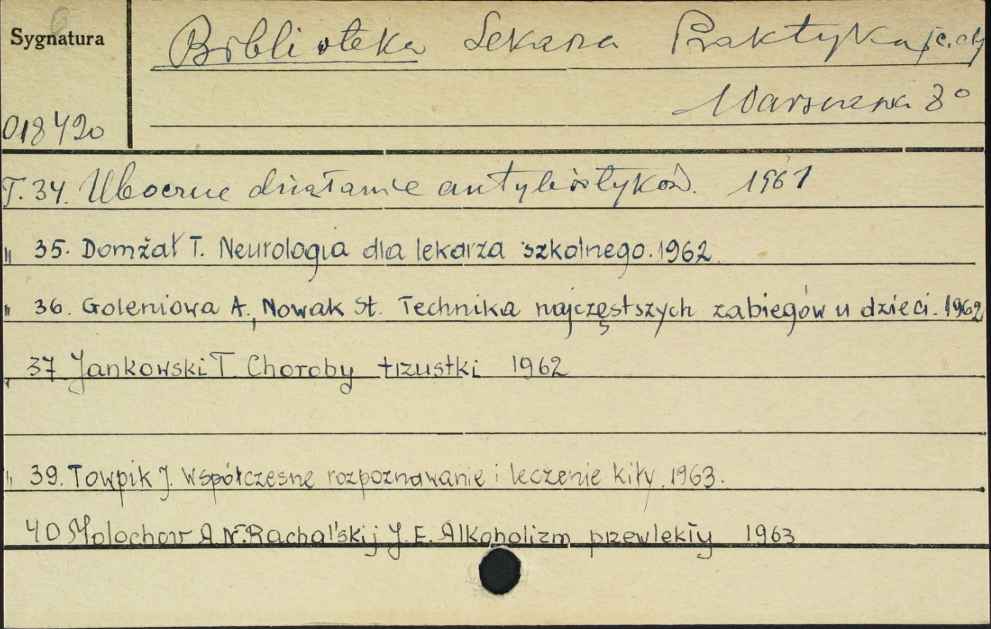 Sygnatura
Biblioteka Lekarza Praktyka /c.d/
Warszawa 8°
018420
T. 34. Uboczne działanie antybiotyków. 1961
" 35. Domżał T. Neurologia dla lekarza szkolnego. 1962.
" 36. Goleniowa A., Nowak St. Technika najczęstszych zabiegów u dzieci. 1962
" 37 Jankowski T. Choroby trzustki 1962
" 39. Towpik J. Współczesne rozpoznawanie i leczenie kiły. 1963.
40 Mołochow A.N. Rachal'skij J. E. Alkoholizm przewlekły 1963